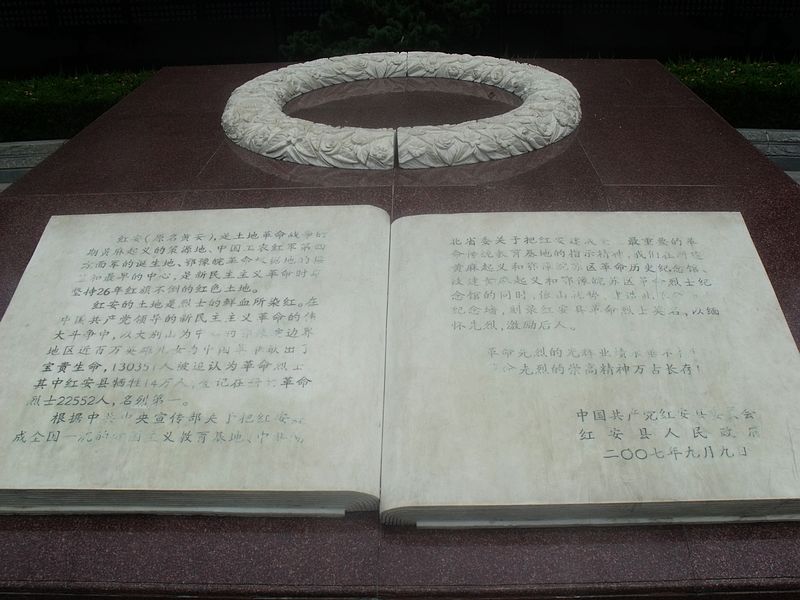 红安（原名黄安），是土地革命战争时
期黄麻起义的策源地、中国工农红军第四
方面军的诞生地、鄂豫皖革命根据地的
和最早的中心，是新民主主义革命时期
坚持26年红旗不倒的红色土地。
红安的土地是烈士的鲜血所染红。在
中国共产党领导的新民主主义革命的伟
大斗争中，以大别山为中 的鄂豫皖边界
地区近百万英雄儿女为中国革命献出了
宝贵生命，130351人被追认为革命烈士
其中红安县牺牲14万人，登记在册的革命
烈士22552人，名列第一。
根据中共中央宣传部关于把红安
成全国一流的爱国主义教育基地、中共湖
北省委关于把红安建成全 最重要的革
命传统教育基地的指示精神，我们在新建
黄麻起义和鄂豫皖苏区革命历史纪念馆、
改建黄麻起义和鄂豫皖苏区革命烈士纪
念馆的同时，依山就势，
纪念墙，刻录红安县革命烈士英名，以缅
怀先烈，激励后人。
革命先烈的光辉业绩永垂不朽
先烈的崇高精神万古长存！
中国共产党红安县委员会
红安县人民政府
二〇〇七年九月九日